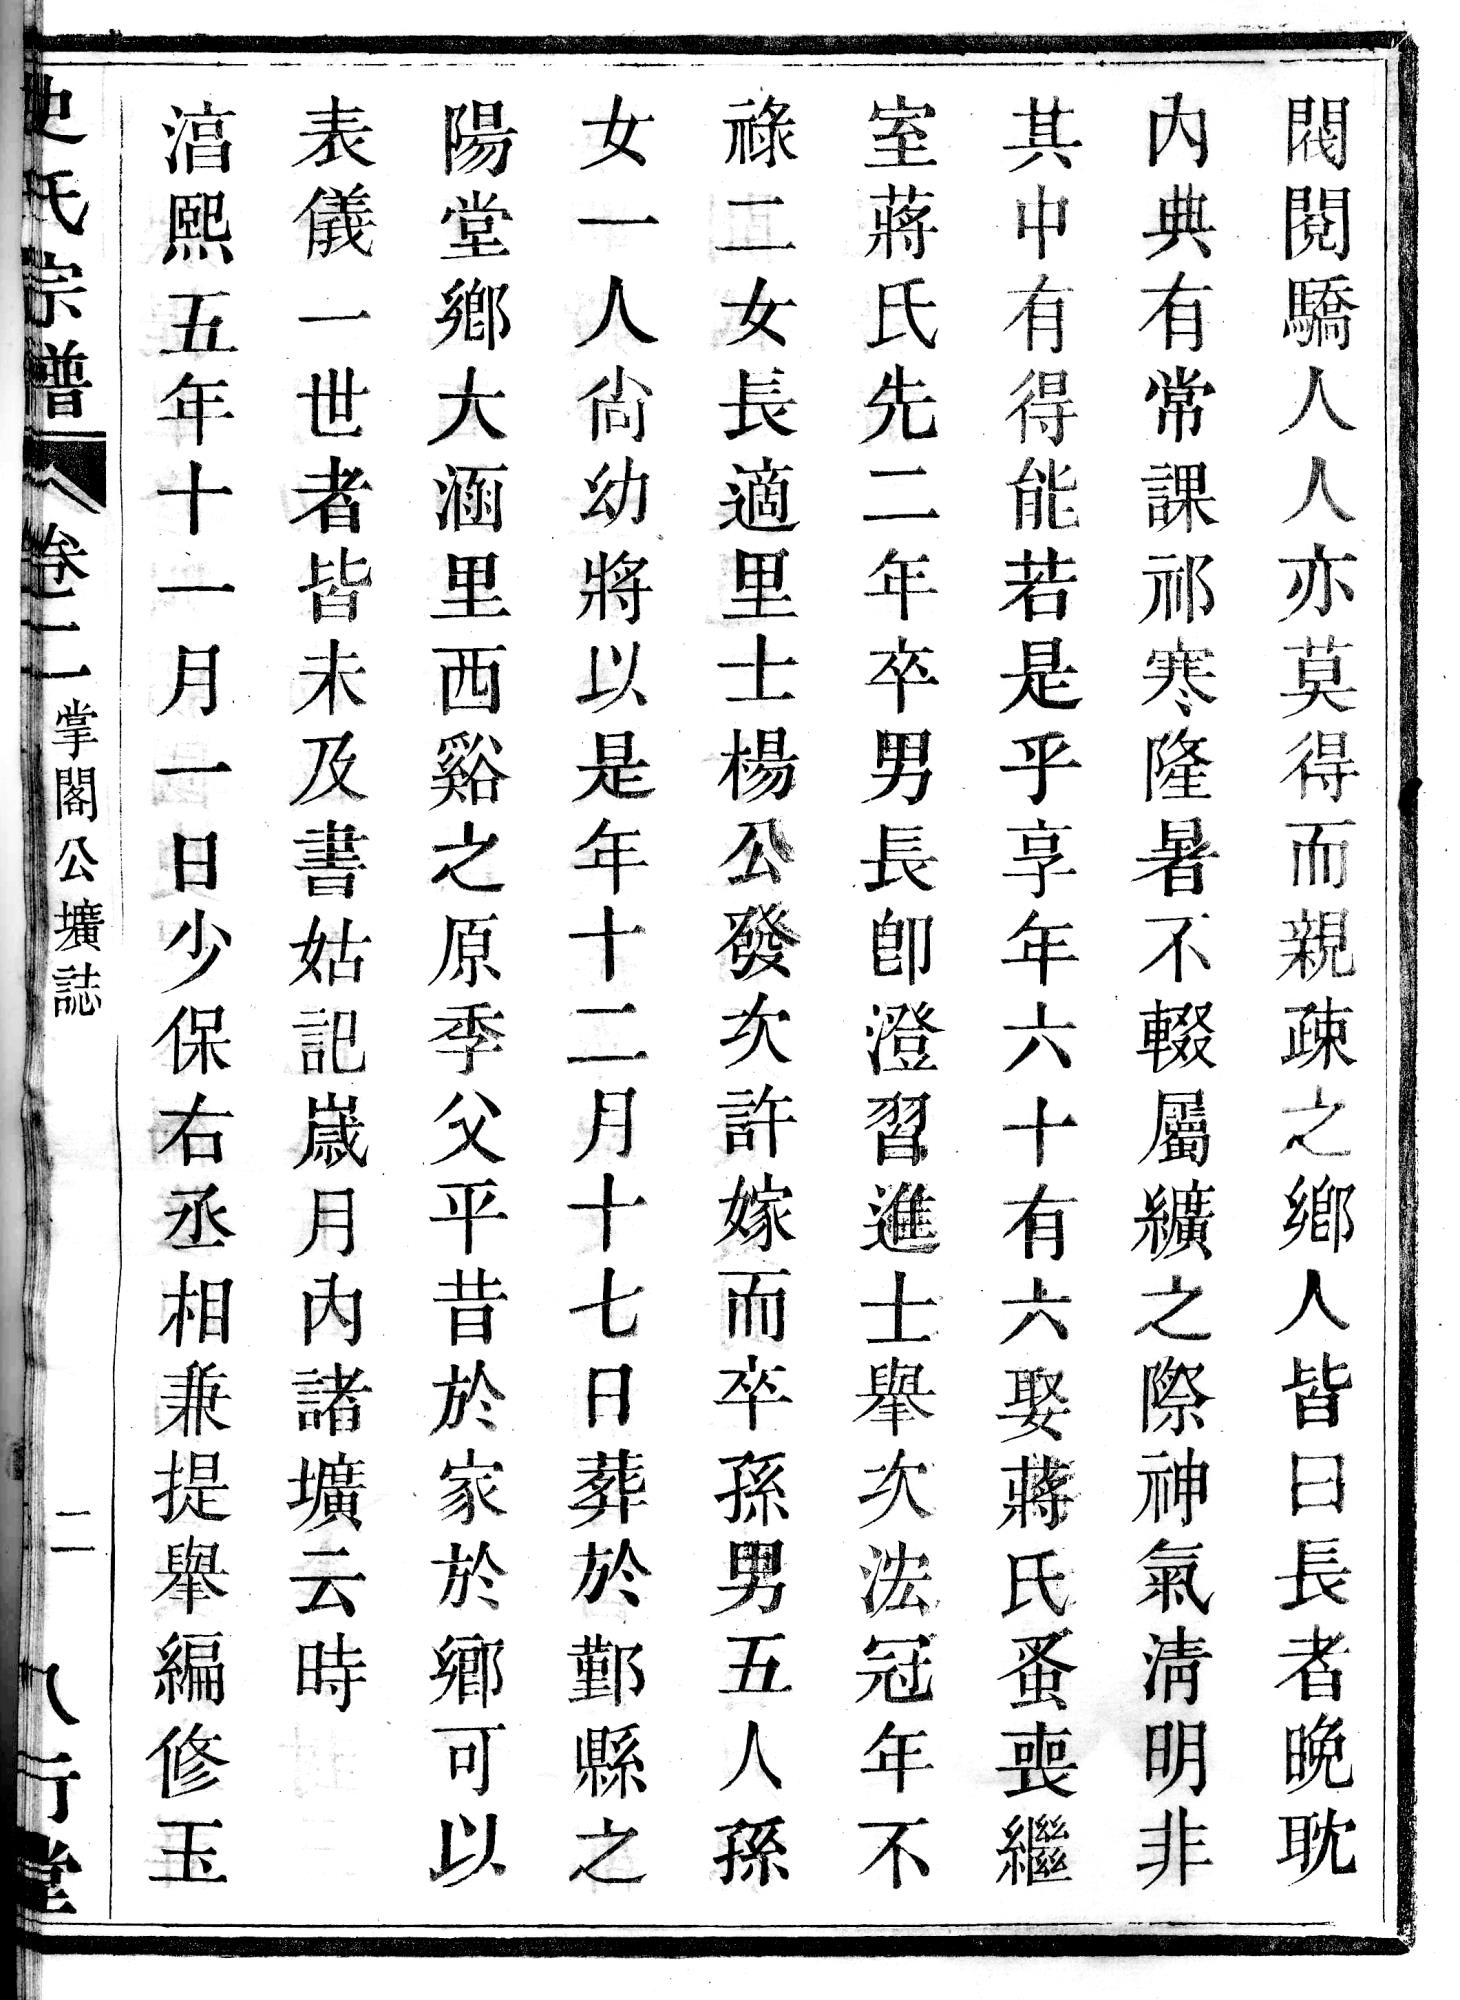 閥閱驕人人亦莫得而親疎之鄉人皆曰長者晚耽
內典有常課祁寒隆暑不輟屬纊之際神氣清明非
其中有得能若是乎享年六十有六娶蔣氏蚤喪繼
室蔣氏先二年卒男長卽澄習進士舉次浤冠年不
祿二女長適里士楊公發次許嫁而卒孫男五人孫
女一人尙幼將以是年十二月十七日葬於鄞縣之
陽堂鄉大涵里西谿之原季父平昔於家於鄉可以
表儀一世者皆未及書姑記歲月內諸壙云時
湻熙五年十一月一日少保右丞相兼提舉編修玉
史氏宗譜 卷二 掌閣公壙誌 二 八行堂